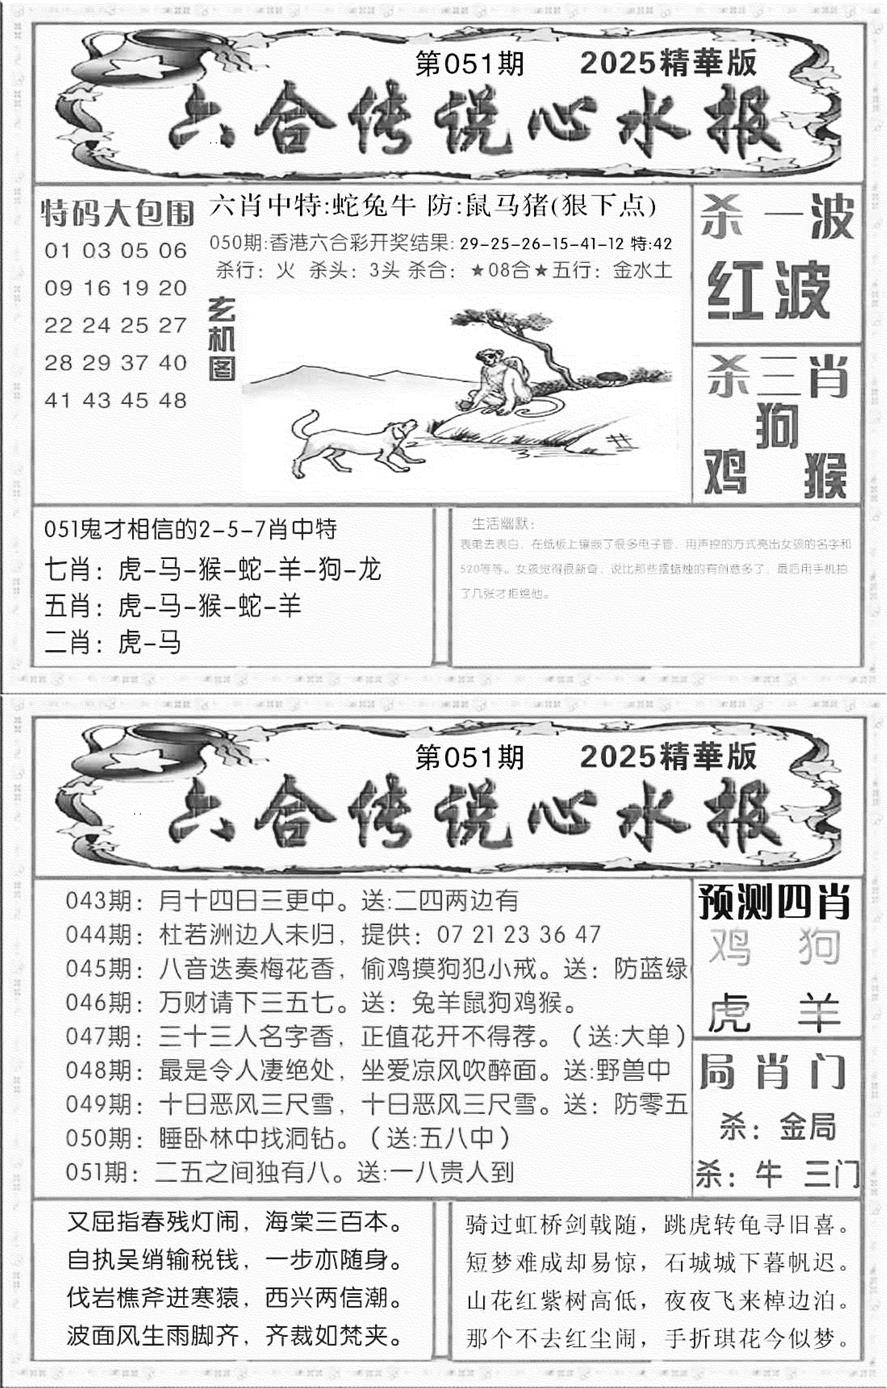 第051期 2025精華版
六合传说心水报
特码大包围
01 03 05 06
09 16 19 20
22 24 25 27
28 29 37 40
41 43 45 48
六肖中特:蛇兔牛 防:鼠马猪(狠下点)
050期:香港六合彩开奖结果: 29-25-26-15-41-12 特:42
杀行：火 杀头：3头 杀合：★08合★五行：金水土
玄机图
杀一波
红波
杀三肖
狗
鸡 猴
051鬼才相信的2-5-7肖中特
七肖：虎-马-猴-蛇-羊-狗-龙
五肖：虎-马-猴-蛇-羊
二肖：虎-马
生活幽默：
表弟去表白，在纸板上镶嵌了很多电子管，用声控的方式亮出女孩的名字和
520等等。女孩觉得很新奇，说比那些摆蜡烛的有创意多了，最后用手机拍
了几张才拒绝他。
第051期 2025精華版
六合传说心水报
043期：月十四日三更中。送:二四两边有
044期：杜若洲边人未归，提供：07 21 23 36 47
045期：八音迭奏梅花香，偷鸡摸狗犯小戒。送：防蓝绿
046期：万财请下三五七。送：兔羊鼠狗鸡猴。
047期：三十三人名字香，正值花开不得荐。（送:大单）
048期：最是令人凄绝处，坐爱凉风吹醉面。送:野兽中
049期：十日恶风三尺雪，十日恶风三尺雪。送：防零五
050期：睡卧林中找洞钻。（送:五八中）
051期：二五之间独有八。送:一八贵人到
预测四肖
鸡 狗
虎 羊
局肖门
杀：金局
杀：牛 三门
又屈指春残灯闹，海棠三百本。
自执吴绡输税钱，一步亦随身。
伐岩樵斧迸寒猿，西兴两信潮。
波面风生雨脚齐，齐裁如梵夹。
骑过虹桥剑戟随，跳虎转龟寻旧喜。
短梦难成却易惊，石城城下暮帆迟。
山花红紫树高低，夜夜飞来棹边泊。
那个不去红尘闹，手折琪花今似梦。